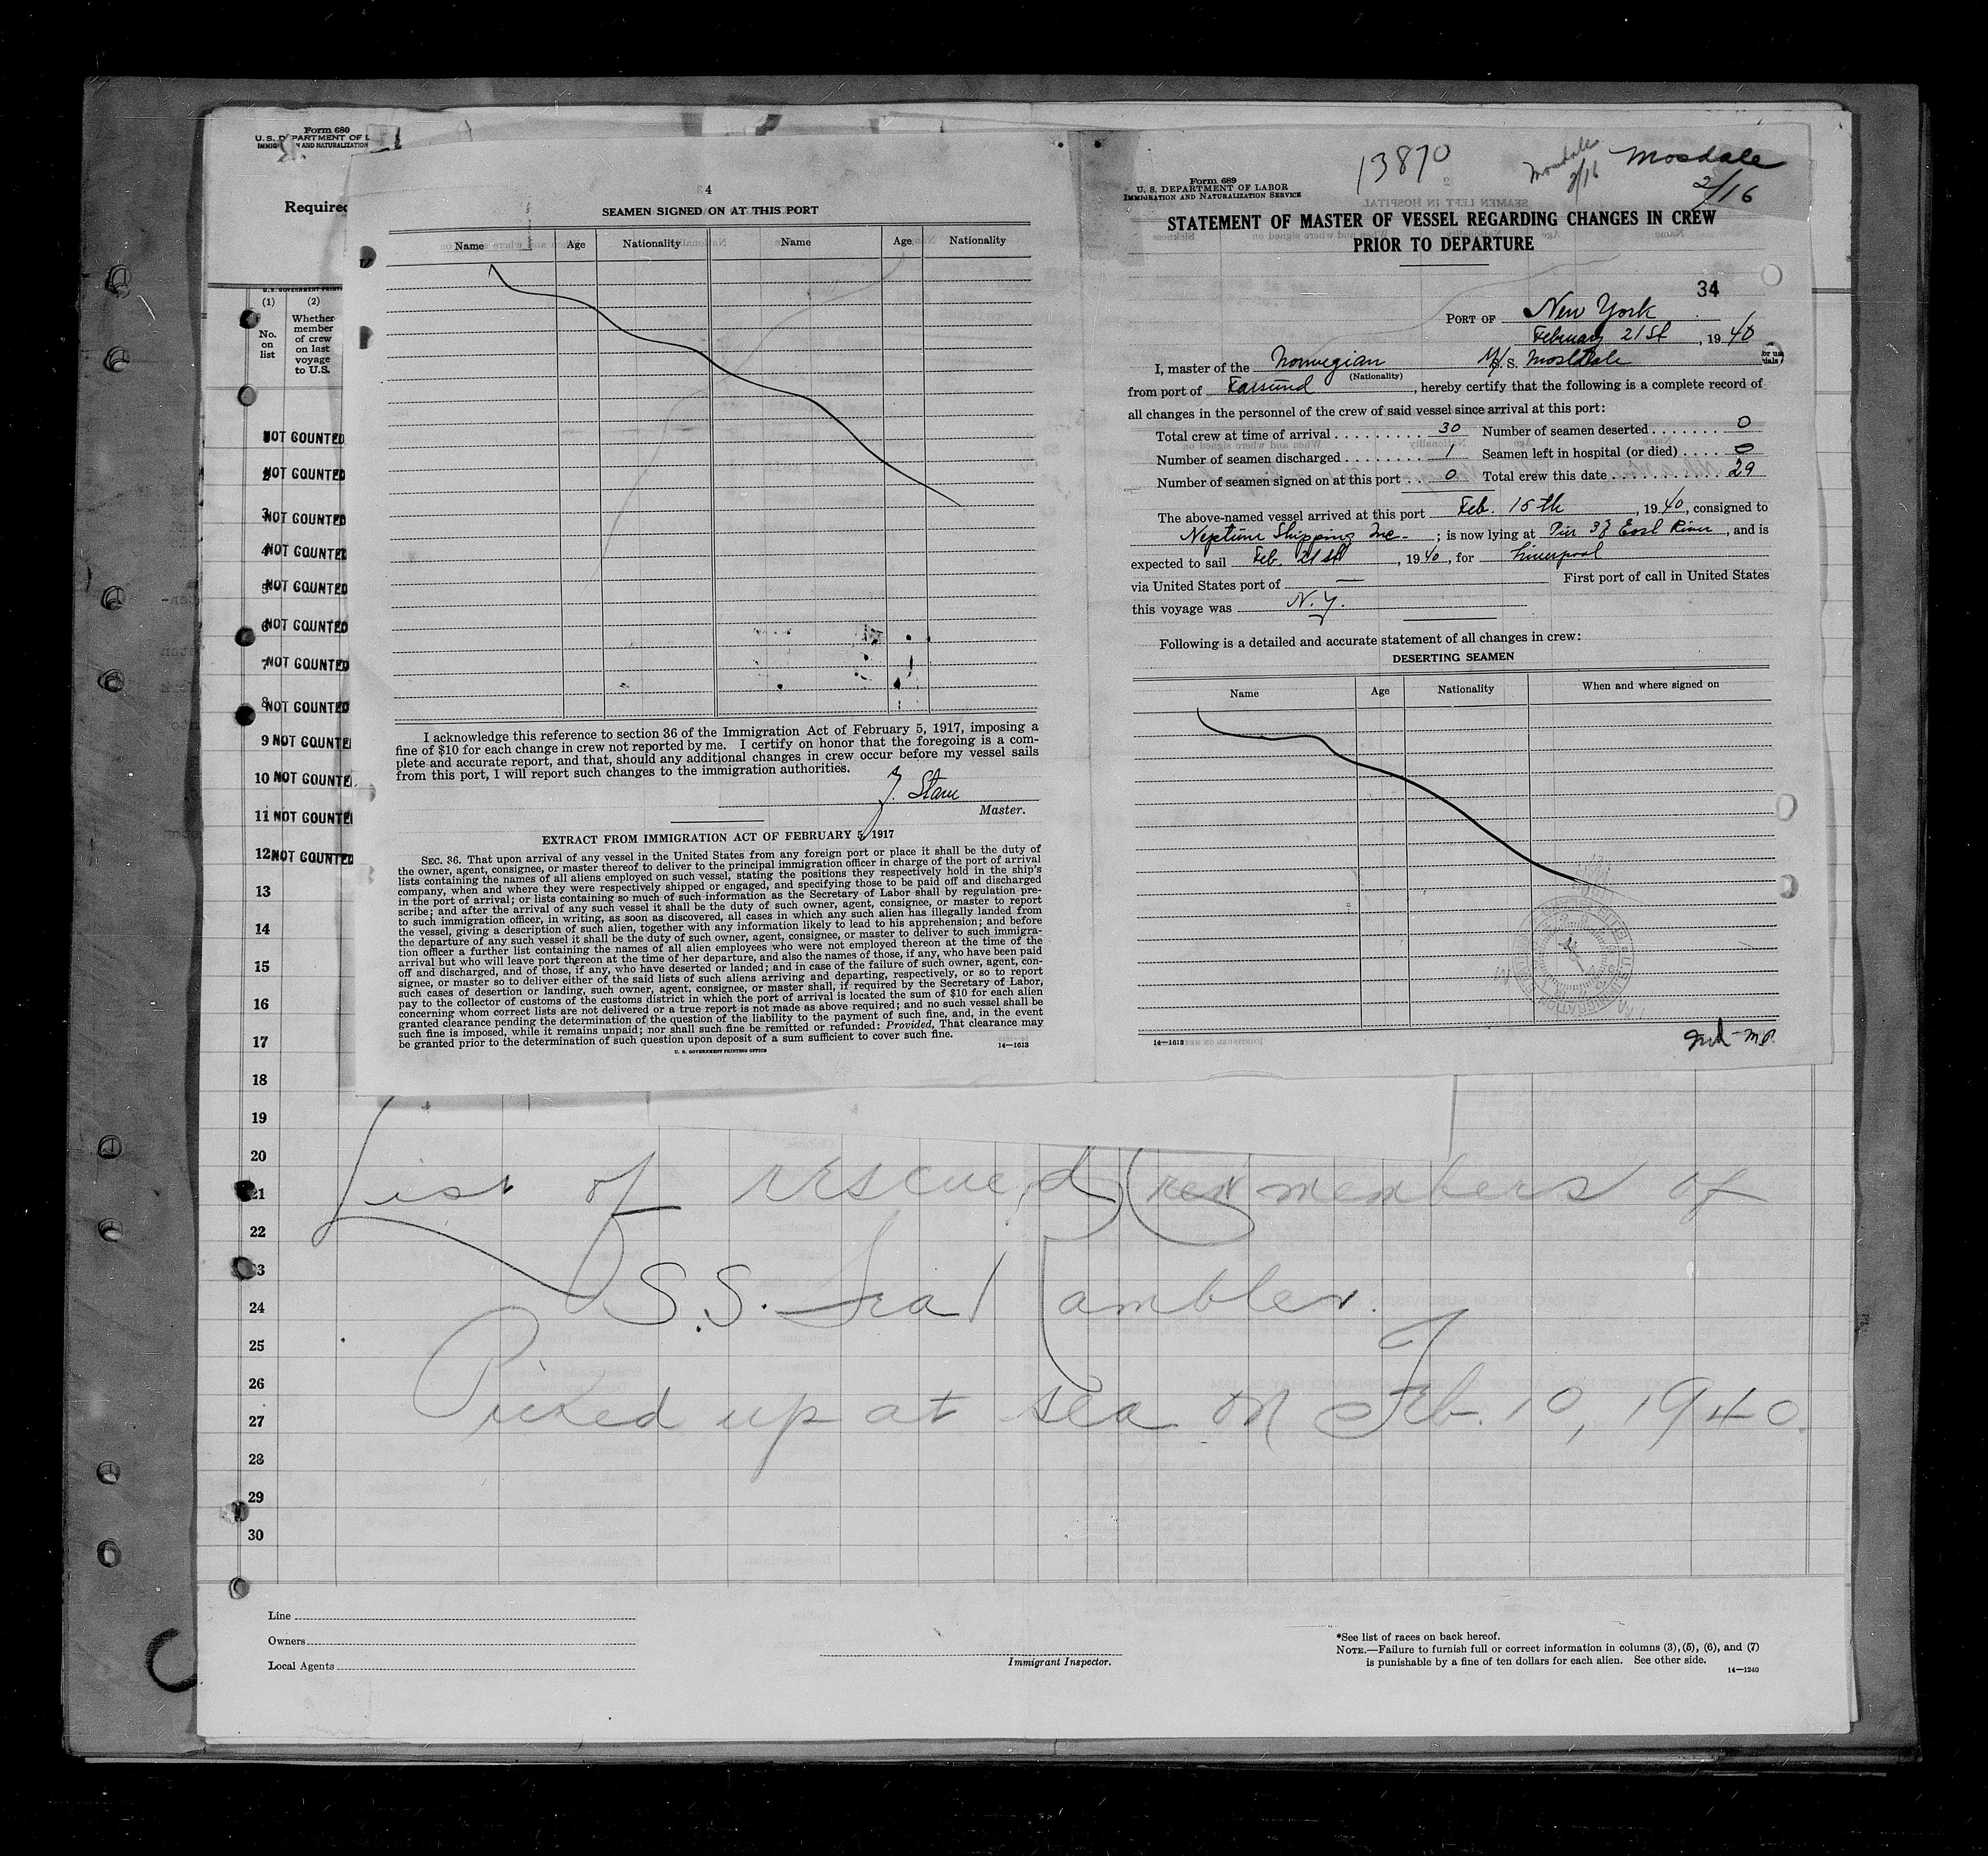 Form 680
U. S. D PARTMENT OF L
IMMIG N AND NATURALIZATION
Required
U. S. GOVERNMENT PRINTI
(1) (2)
No. on list
Whether member of crew on last voyage to U.S.
NOT COUNTED
2 NOT COUNTED
3 NOT COUNTED
4 NOT COUNTED
5 NOT COUNTED
6 NOT COUNTED
7 NOT COUNTED
8 NOT COUNTED
9 NOT COUNTE
10 NOT COUNTE
11 NOT COUNTE
12 NOT COUNTED
13
14
15
16
17
18
19
20
21
22
23
24
25
26
27
28
29
30
4
SEAMEN SIGNED ON AT THIS PORT
Name Age Nationality Name Age Nationality
I acknowledge this reference to section 36 of the Immigration Act of February 5, 1917, imposing a
fine of $10 for each change in crew not reported by me. I certify on honor that the foregoing is a com-
plete and accurate report, and that, should any additional changes in crew occur before my vessel sails
from this port, I will report such changes to the immigration authorities.
Master.
EXTRACT FROM IMMIGRATION ACT OF FEBRUARY 5, 1917
SEC. 36. That upon arrival of any vessel in the United States from any foreign port or place it shall be the duty of
the owner, agent, consignee, or master thereof to deliver to the principal immigration officer in charge of the port of arrival
lists containing the names of all aliens employed on such vessel, stating the positions they respectively hold in the ship's
company, when and where they were respectively shipped or engaged, and specifying those to be paid off and discharged
in the port of arrival; or lists containing so much of such information as the Secretary of Labor shall by regulation pre-
scribe; and after the arrival of any such vessel it shall be the duty of such owner, agent, consignee, or master to report
to such immigration officer, in writing, as soon as discovered, all cases in which any such alien has illegally landed from
the vessel, giving a description of such alien, together with any information likely to lead to his apprehension; and before
the departure of any such vessel it shall be the duty of such owner, agent, consignee, or master to deliver to such immigra-
tion officer a further list containing the names of all alien employees who were not employed thereon at the time of the
arrival but who will leave port thereon at the time of her departure, and also the names of those, if any, who have been paid
off and discharged, and of those, if any, who have deserted or landed; and in case of the failure of such owner, agent, con-
signee, or master so to deliver either of the said lists of such aliens arriving and departing, respectively, or so to report
such cases of desertion or landing, such owner, agent, consignee, or master shall, if required by the Secretary of Labor,
pay to the collector of customs of the customs district in which the port of arrival is located the sum of $10 for each alien
concerning whom correct lists are not delivered or a true report is not made as above required; and no such vessel shall be
granted clearance pending the determination of the question of the liability to the payment of such fine, and, in the event
such fine is imposed, while it remains unpaid; nor shall such fine be remitted or refunded: Provided, That clearance may
be granted prior to the determination of such question upon deposit of a sum sufficient to cover such fine.
U. S. GOVERNMENT PRINTING OFFICE 14—1613
13870
Mosdale 2/16
Mosdale
2/16
Form 689
U. S. DEPARTMENT OF LABOR
IMMIGRATION AND NATURALIZATION SERVICE
STATEMENT OF MASTER OF VESSEL REGARDING CHANGES IN CREW
PRIOR TO DEPARTURE
34
PORT OF New York
February 21st, 1940
I, master of the Norwegian M/S. S. Mosdale
(Nationality)
from port of Farsund, hereby certify that the following is a complete record of
all changes in the personnel of the crew of said vessel since arrival at this port:
Total crew at time of arrival 30 Number of seamen deserted 0
Number of seamen discharged 1 Seamen left in hospital (or died) 0
Number of seamen signed on at this port 0 Total crew this date 29
The above-named vessel arrived at this port Feb. 15th, 1940, consigned to
Neptune Shipping Inc. ; is now lying at Pier 38 East River, and is
expected to sail Feb. 21st, 1940, for Liverpool
via United States port of — First port of call in United States
this voyage was N.Y.
Following is a detailed and accurate statement of all changes in crew:
DESERTING SEAMEN
Name Age Nationality When and where signed on
14—1613
List of rescued crew members of
S.S. Sea Rambler.
Picked up at sea on Feb. 10, 1940.
Line
Owners
Local Agents
Immigrant Inspector.
*See list of races on back hereof.
NOTE.—Failure to furnish full or correct information in columns (3), (5), (6), and (7)
is punishable by a fine of ten dollars for each alien. See other side.
14—1240